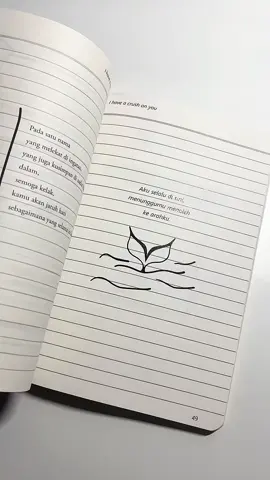 Pada satu nama
yang melekat di ingatan,
yang juga kusimpan di
dalam,
semoga kelak,
kamu akan jatuh hati
sebagaimana yang
I have a crush on you
Aku selalu di sini,
menunggumu menoleh
ke arahku
49